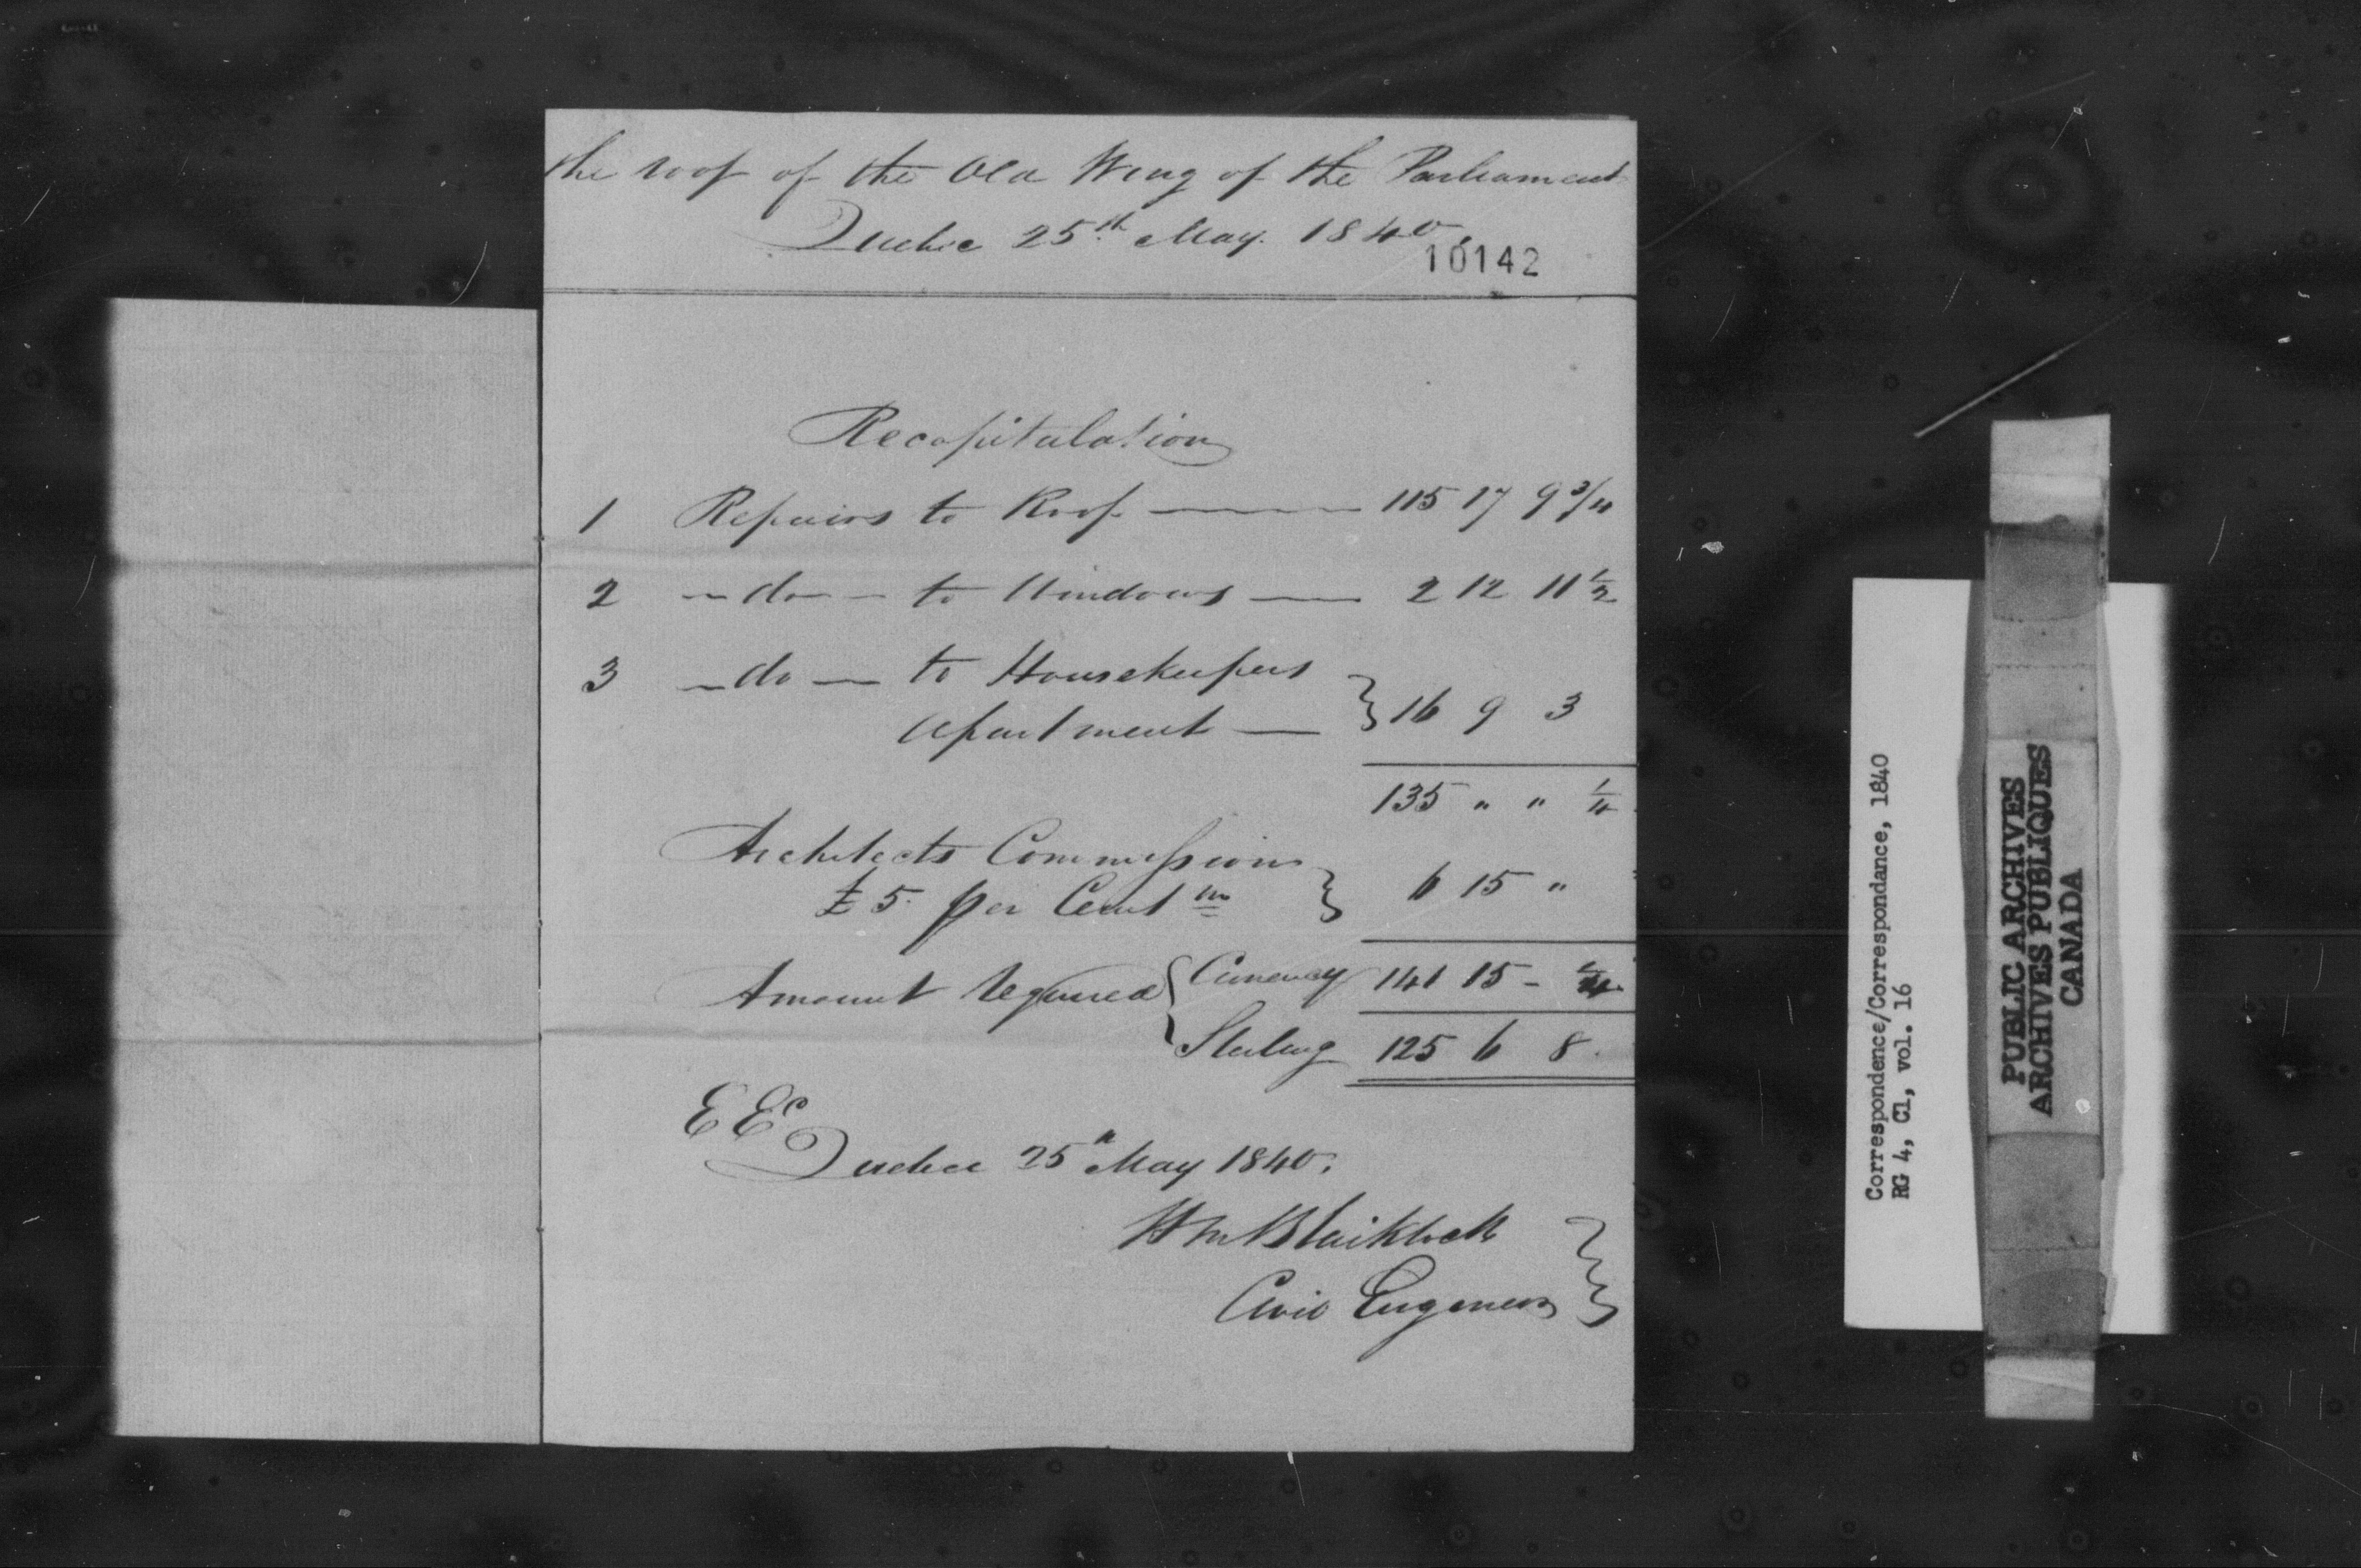 the roof of the Old Wing of the Parliament
Quebec 25th May. 1840.
10142
Recapitulation
1 Repairs to Roof — 115 17 9 3/4
2 — do — to Windows — 2 12 11 1/2
3 — do — to Housekeepers
apartment — } 16 9 3
135 " " 1/4
Architects Commission
£5 per Cent } 6 15 "
Amount required { Currency 141 15 - 1/4
Sterling 125 6 8.
E E
Quebec 25th May 1840.
Wm Blaiklock
Civil Engineer
Correspondence/Correspondance, 1840
RG 4, C1, vol. 16
PUBLIC ARCHIVES
ARCHIVES PUBLIQUES
CANADA